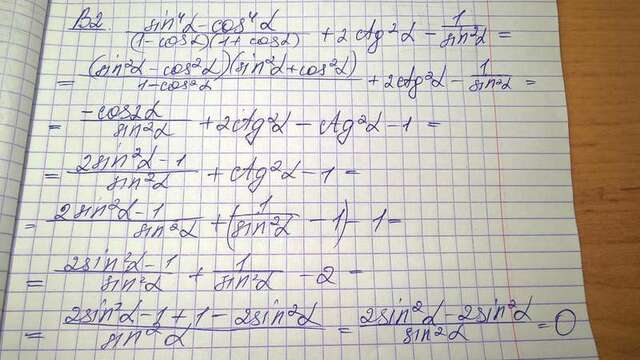 B2. (sin⁴α - cos⁴α)/((1-cosα)(1+cosα)) + 2ctg²α - 1/sin²α =
= ((sin²α - cos²α)(sin²α+cos²α))/(1-cos²α) + 2ctg²α - 1/sin²α =
= (-cos2α)/(sin²α) + 2ctg²α - ctg²α - 1 =
= (2sin²α - 1)/(sin²α) + ctg²α - 1 =
= (2sin²α - 1)/(sin²α) + (1/sin²α - 1) - 1 =
= (2sin²α - 1)/(sin²α) + 1/sin²α - 2 =
= (2sin²α - 1 + 1 - 2sin²α)/(sin²α) = (2sin²α - 2sin²α)/(sin²α) = 0